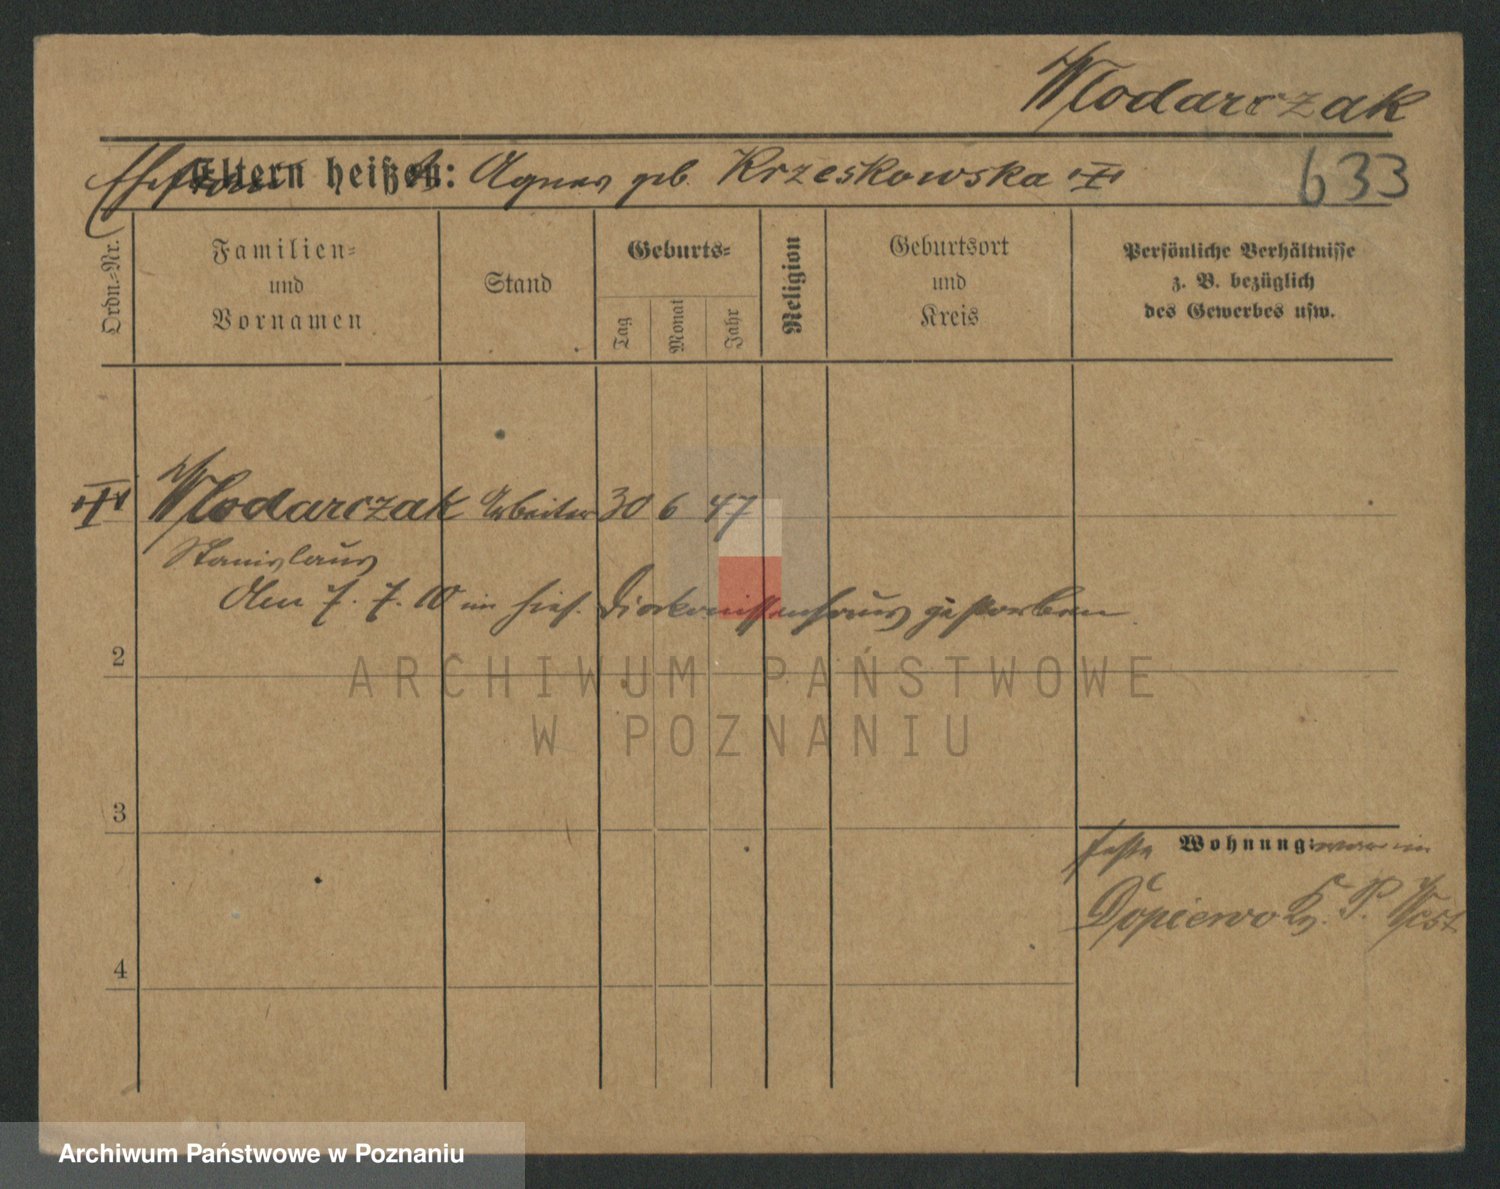 Wlodarczak
Ehefrau Eltern heißen: Agnes geb. Krzeskowska
633
Ordn.-Nr.
Familien-
und
Vornamen
Stand
Geburts-
Tag
Monat
Jahr
Religion
Geburtsort
und
Kreis
Persönliche Verhältnisse
z. B. bezüglich
des Gewerbes usw.
Wlodarczak Arbeiter 30 6 47
Stanislaus
Den 7. 7. 10 im hies. Diakonissenhaus gestorben
2
ARCHIWUM PAŃSTWOWE
W POZNANIU
3
feste Wohnung: war in
Dopiewo Kr. P. West
4
Archiwum Państwowe w Poznaniu